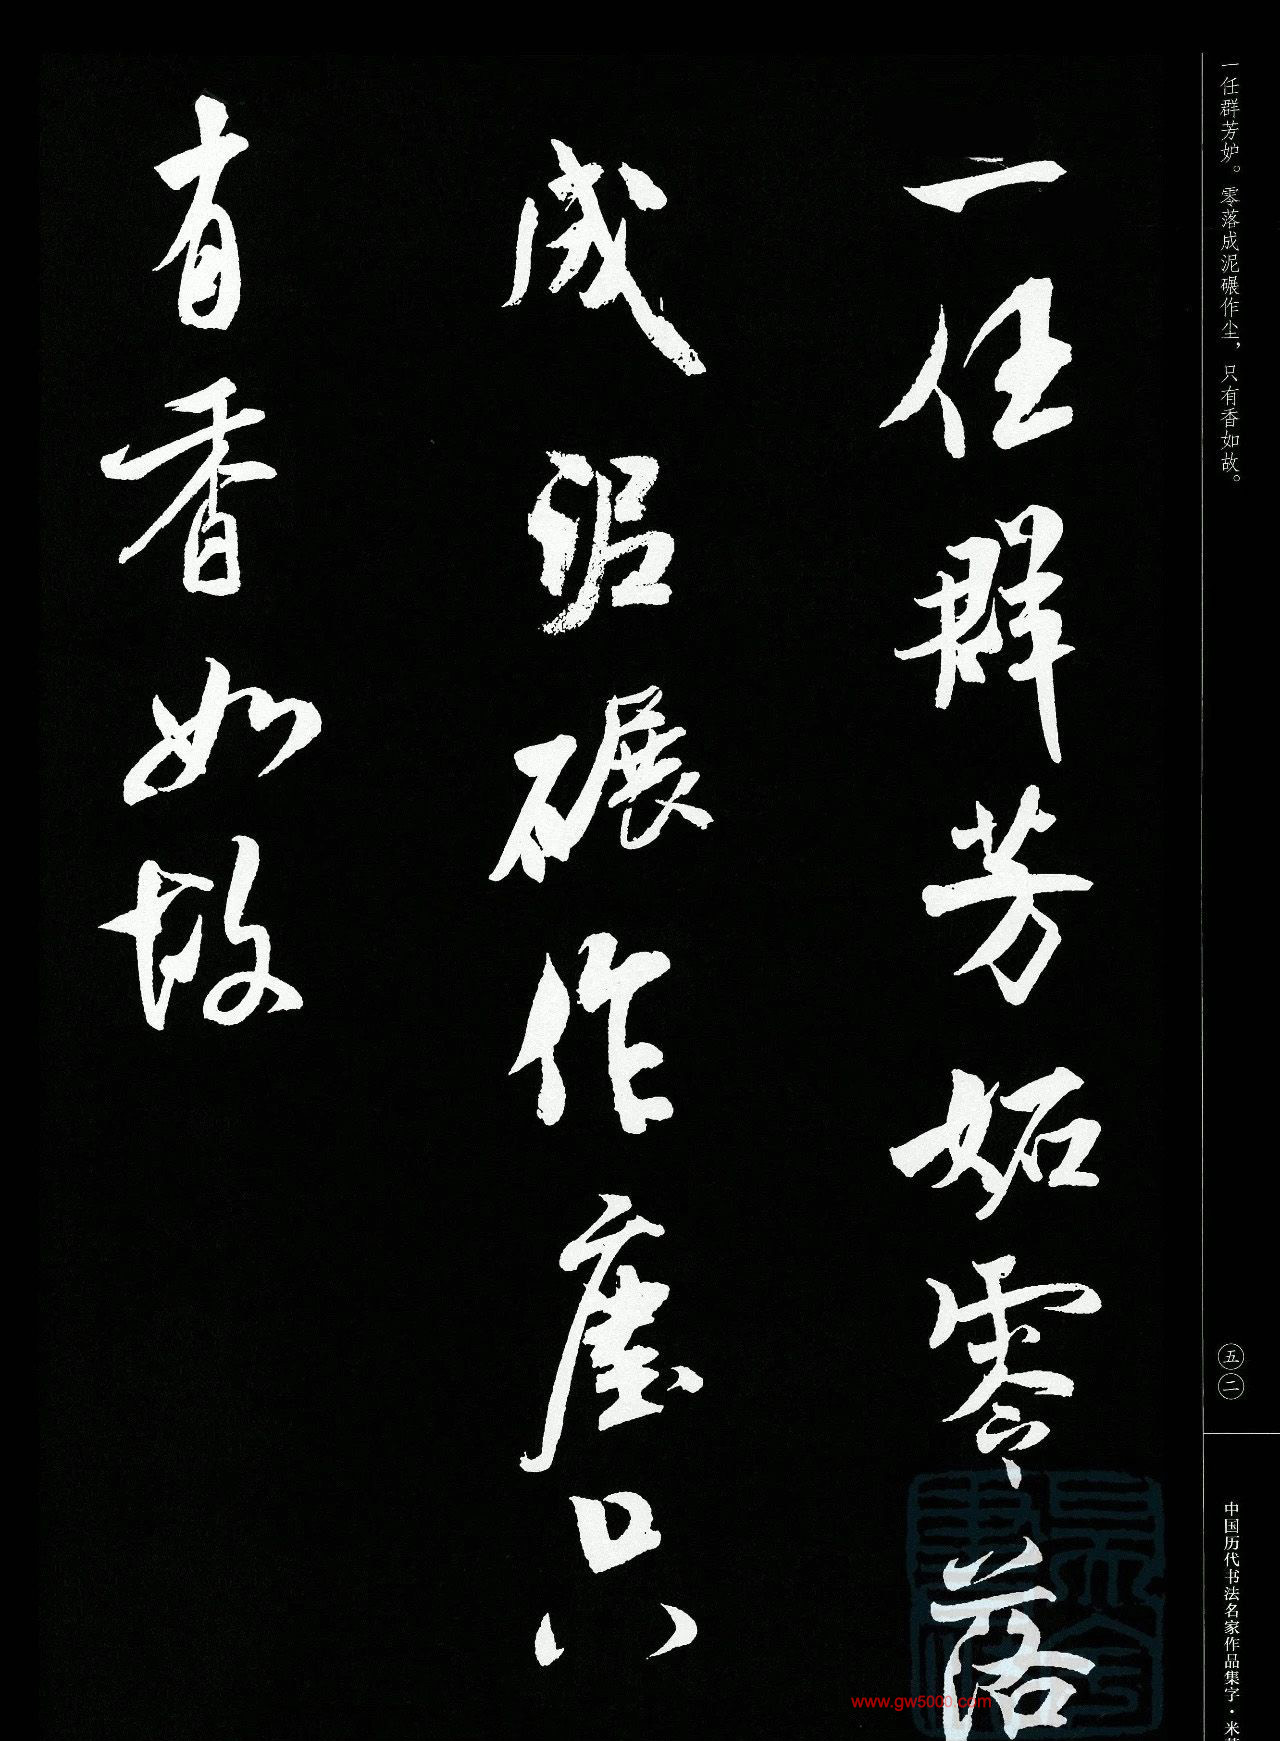 一任群芳妒。零落成泥碾作尘，只有香如故。
一任群芳妬零落
成泥碾作塵只
有香如故
五二
中国历代书法名家作品集字·米
www.gw5000.com